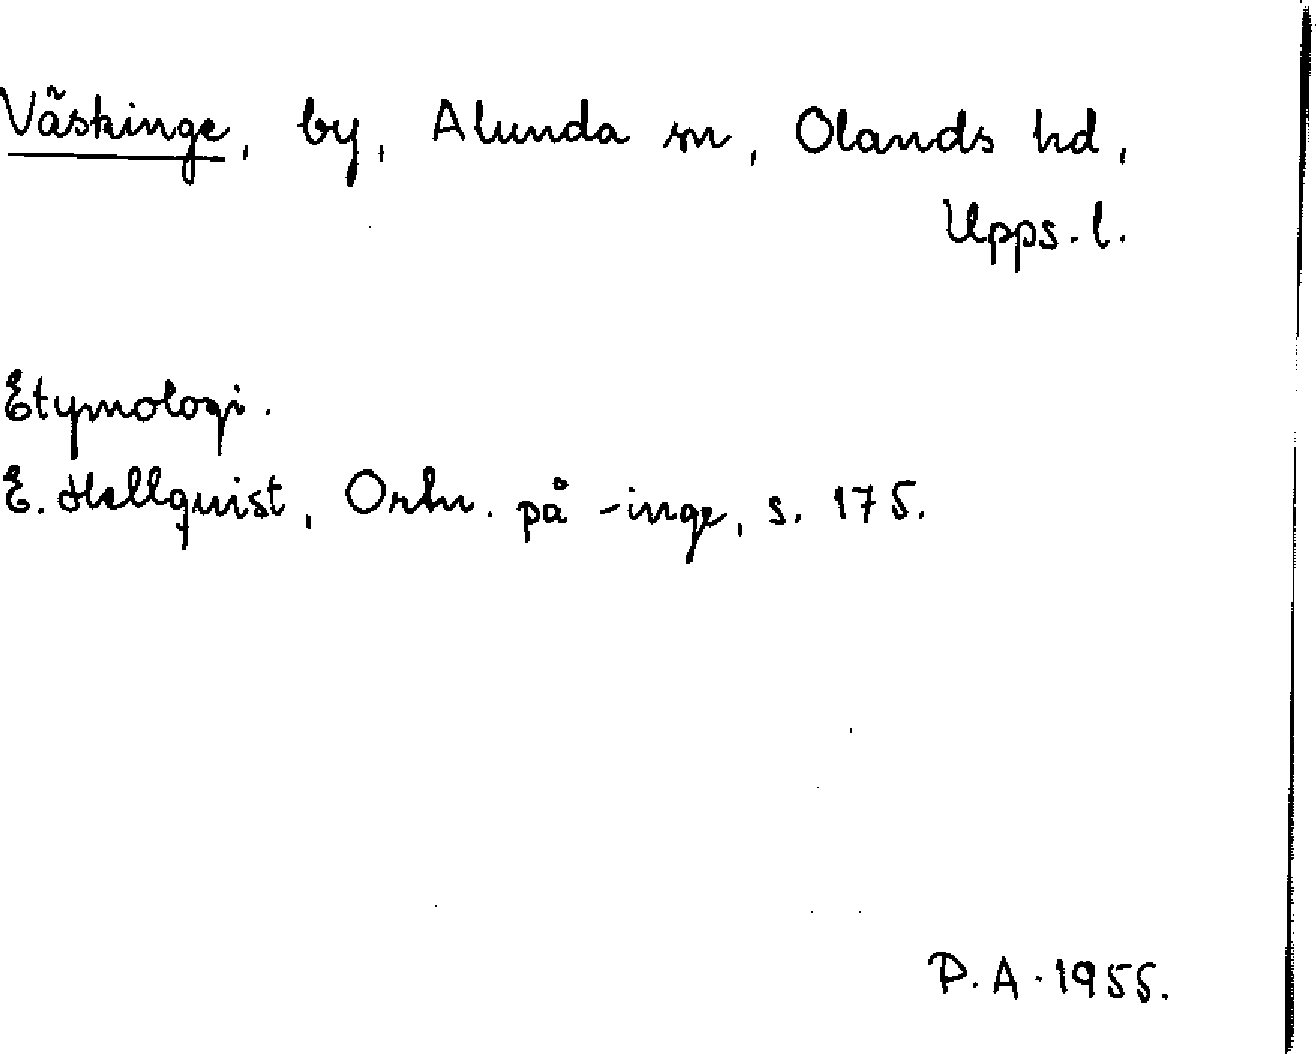 Väskinge, by, Alunda sn, Olands hd,
Upps. l.
Etymologi.
E. Hellquist, Ortn. på -inge, s. 175.
P. A. 1955.